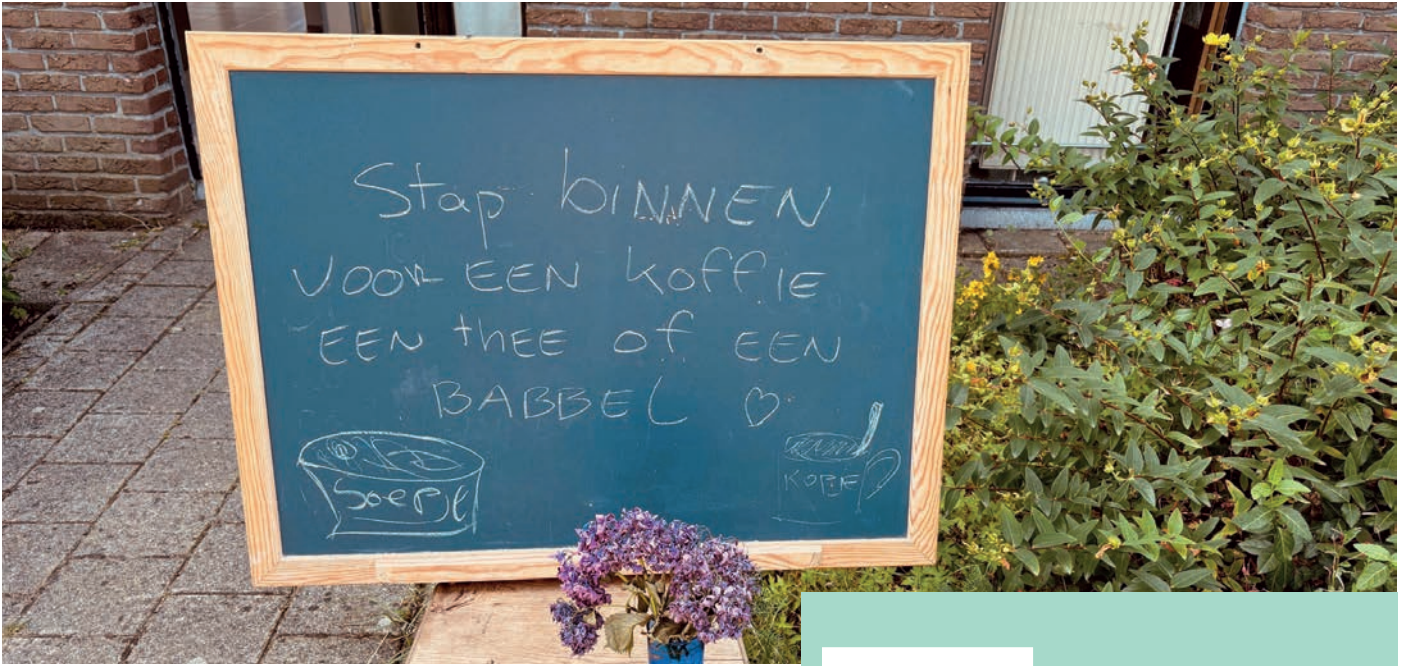 Stap binnen
voor EEN koffie
EEN thEE of EEN
BABBEL ♡
Soepje
KOPJE